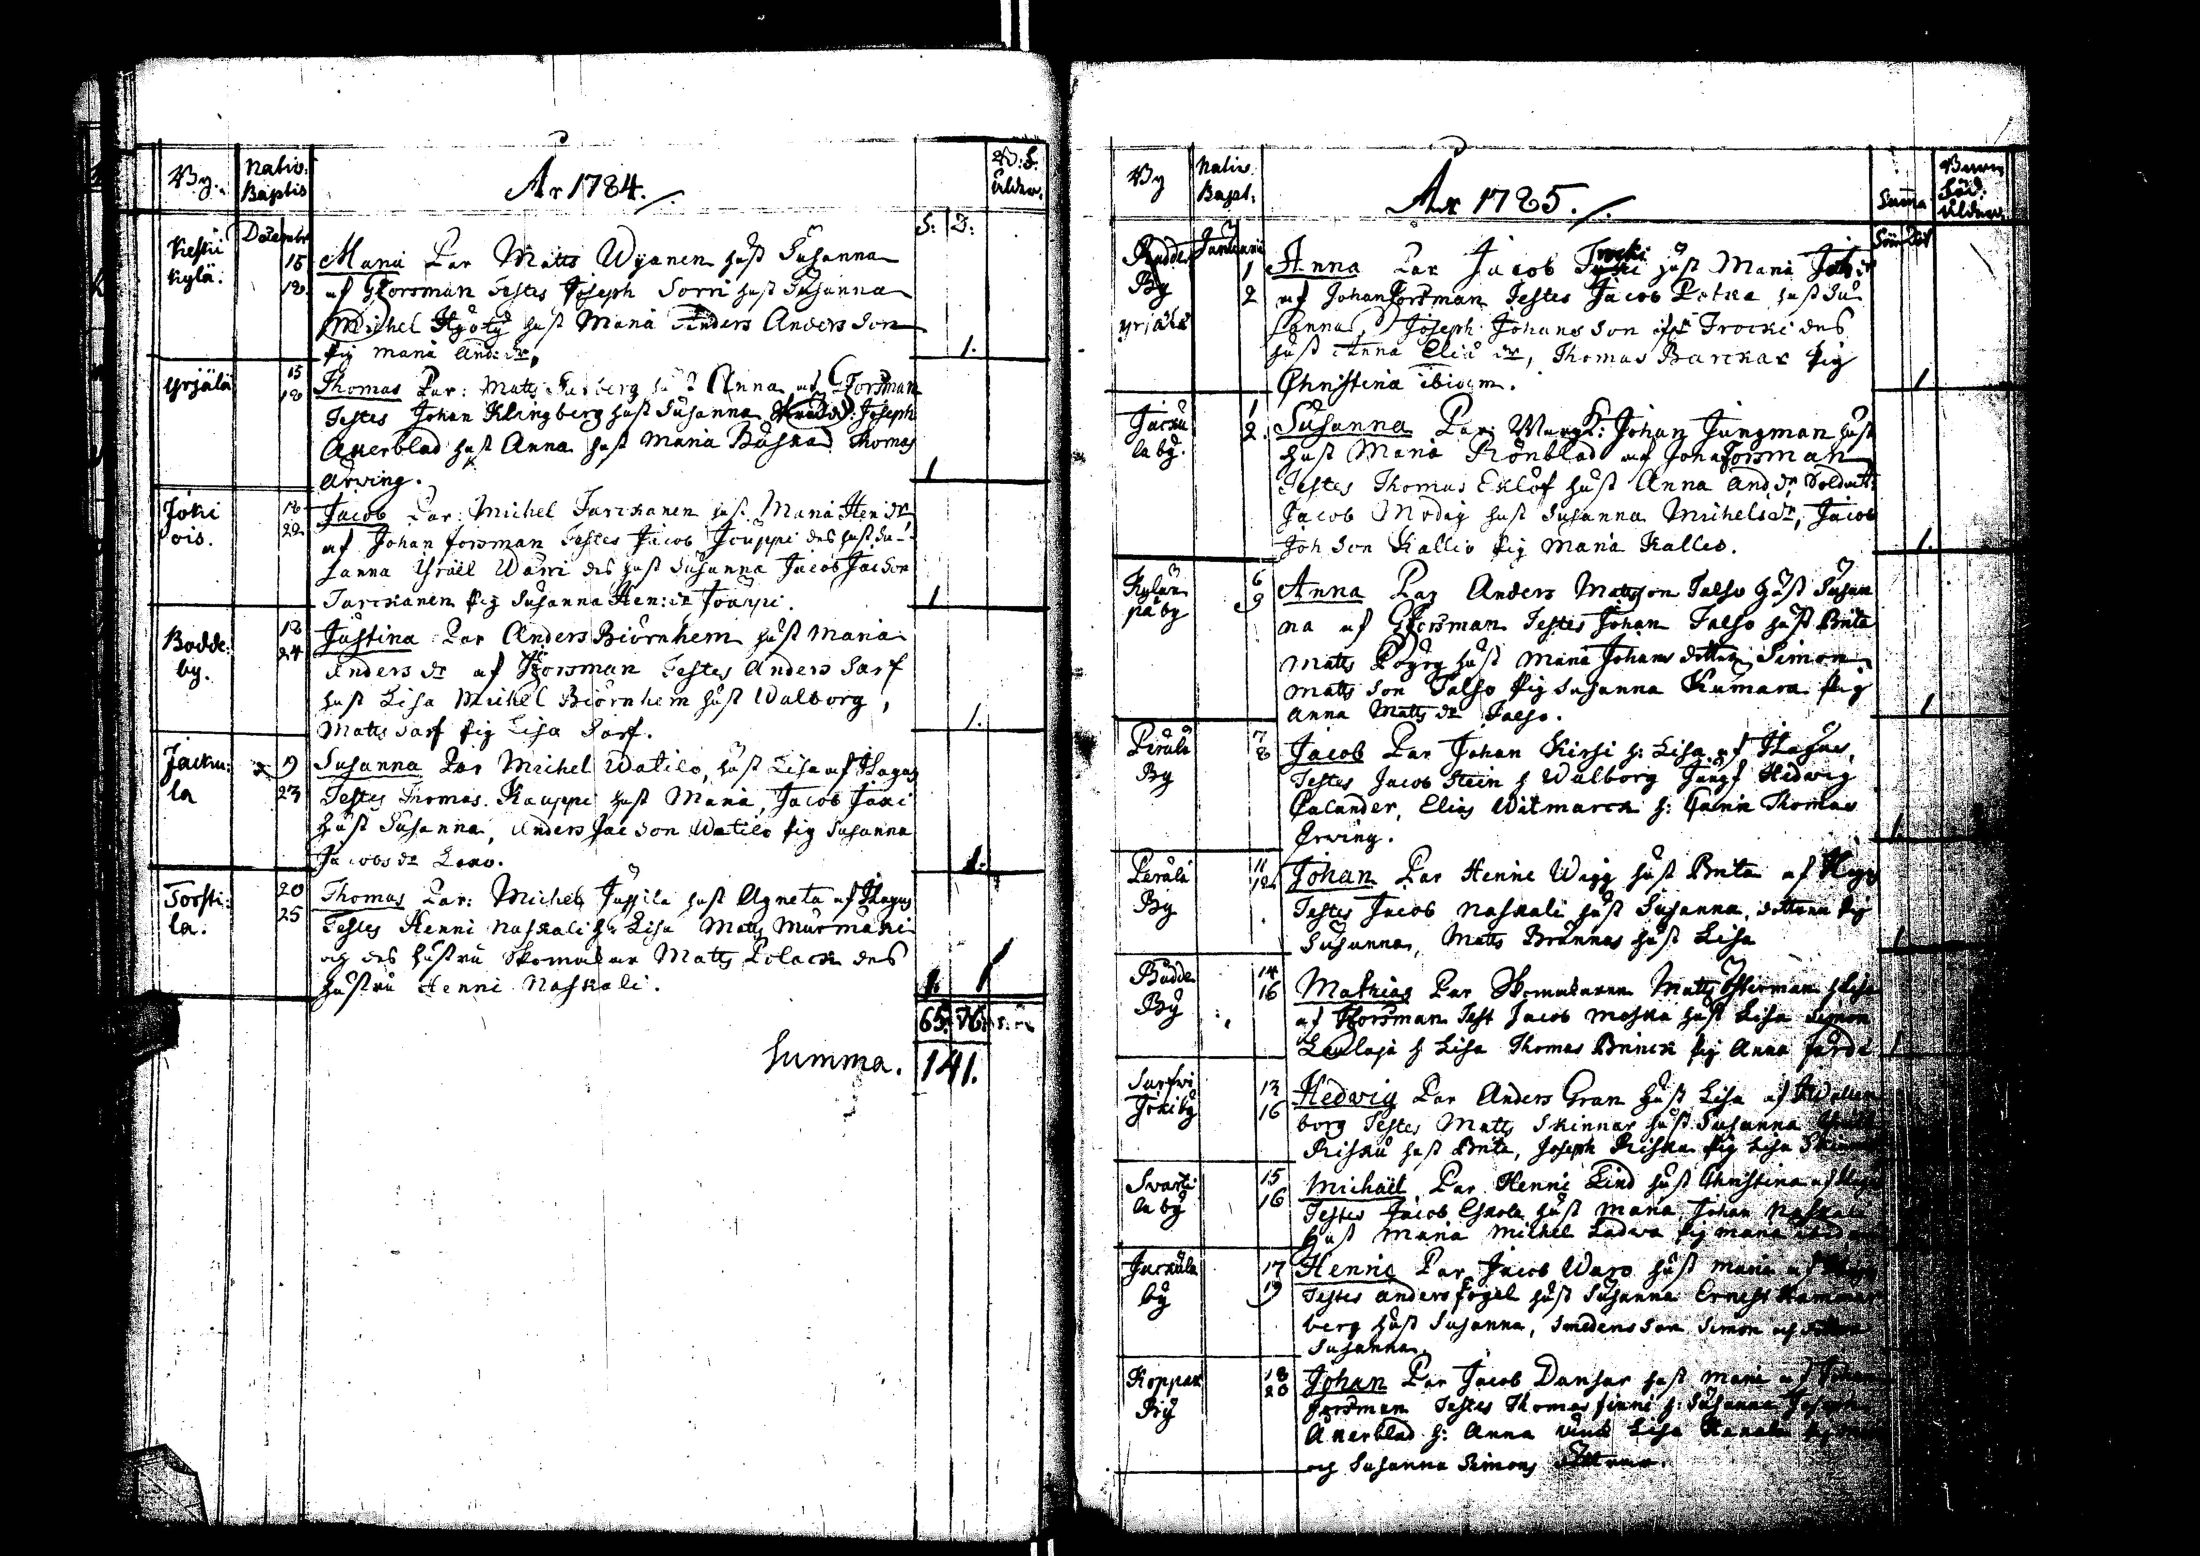 By.
Nativ:
Baptis
År 1784./.
B: S:
Ålder.
Decembr
S: D:
Keski
kylä.
15
18
Maria Par Matts Wÿanen hust Susanna
af GForsman Testes Joseph Sorri hust Susanna
Michel Hÿötÿ hust Maria Anders Andersson
pig maria And: dr,
1.
Yrjälä
15
18
Thomas Par: Matts hust Anna af GForsman
Testes Johan Klingberg hust Susanna Joseph
Akerblad hust Anna hust Maria Thomas
Arving.
1
Joki
ois.
18
22
Jacob Par: Michel Turckanen hust Maria Hen dr
af Johan forsman Testes Jacob Jouppi des hust Su-
sanna Israel Warri des hust Susanna Jacob Jacson
Turckanen pig Susanna Hen: dr Jouppi.
1
Badde:
by.
18
24
Justina Par Anders Biörnhem hust Maria
Anders dr af Forsman Testes Anders Sarf
hust Lisa Michel Biörnhem hust Walborg,
Matts Sarf pig Lisa Sarf.
1.
Jacku:
la
19
23
Susanna Par Michel Watilo, hust Lisa af Hagus
Testes Thomas Kauppi hust Maria, Jacob Jaki
hust Susanna, Anders Jacson Watilo pig Susanna
Jacobs dr
1.
Torsti:
la.
20
25
Thomas Par: Michel Jussila hust Agneta af Hagus
Testes Henni Naskali h: Lisa Matts Murmaki
och des hustru Skomakar Matts Polack des
hustru Henni Naskali.
1
65. 76.
Summa. 141.
By
Nativ
Bapt:
År 1785./.
Summa
Barn
föd.
Ålder
Januari
Sön Dot
Badde
By
yrjälä
1
2
Anna Par Jacob Trocki hust Maria Joh dr
af Johan Forsman Testes Jacob Petka hust Su
sanna, Joseph Johansson Trocki des
hust Anna Eliæ dr, Thomas Barckar pig
Christina ibidem.
1
Jacku
la by.
1
2.
Susanna Par: Johan Jungman hust
hust Maria Rönblad af Joha Forsman
Testes Thomas Eklöf hust Anna And dr Soldat:
Jacob Modig hust Susanna Michels dr, Jacob
Joh son Kallio pig Maria Kallio.
1.
Kylän
pä by
6
9
Anna Par Anders Mattsson Talso hust Susan
na af GForsman Testes Johan Talso hust Brita
Matts hust Maria Johans dotter Simon
Matts son Talso pig Susanna Kumara pig
Anna Matts dr Talso.
1
Perälä
By
7
8
Jacob Par Johan Kirsi h: Lisa af Hagus,
Testes Jacob Stein h Walborg Jungf Hedwig
Calander, Elias Witmarck h: Thomas
Arving.
1
Perälä
By
11
12
Johan Par Henric Wigg hust Brita af
Testes Jacob Naskali hust Susanna, dottern pig
Susanna, Matts Brännas hust Lisa
1
Badde
By
14
16
Mathias Par Skomakaren Matts Österman h Lisa
af Forsman Test Jacob Moska hust Lisa Simon
Laulaja h Lisa Thomas Brinck pig Anna
1
Sarfwi
Joki by
13
16
Hedwig Par Anders Gran hust Lisa af Wallen
borg Testes Matts Skinnar hust Susanna
Risku hust Brita, Joseph Riska pig Lisa
Svarti
la by
15
16
Michaël Par Henric Lind hust Christina af
Testes Jacob Eskola hust Maria Johan Naskali
hust Maria Michel Ladwa pig maria
Jackula
by
17
19
Henric Par Jacob Waro hust maria af
Testes Anders Fogel hust Susanna Ernest Hammar
berg hust Susanna, Smedens son Simon och
Susanna.
Koppar
By
18
20
Johan Par Jacob Danjar hust Maria af Johan
Forsman Testes Thomas finni h: Susanna Joseph
Akerblad h: Anna Lisa
och Susanna Simons